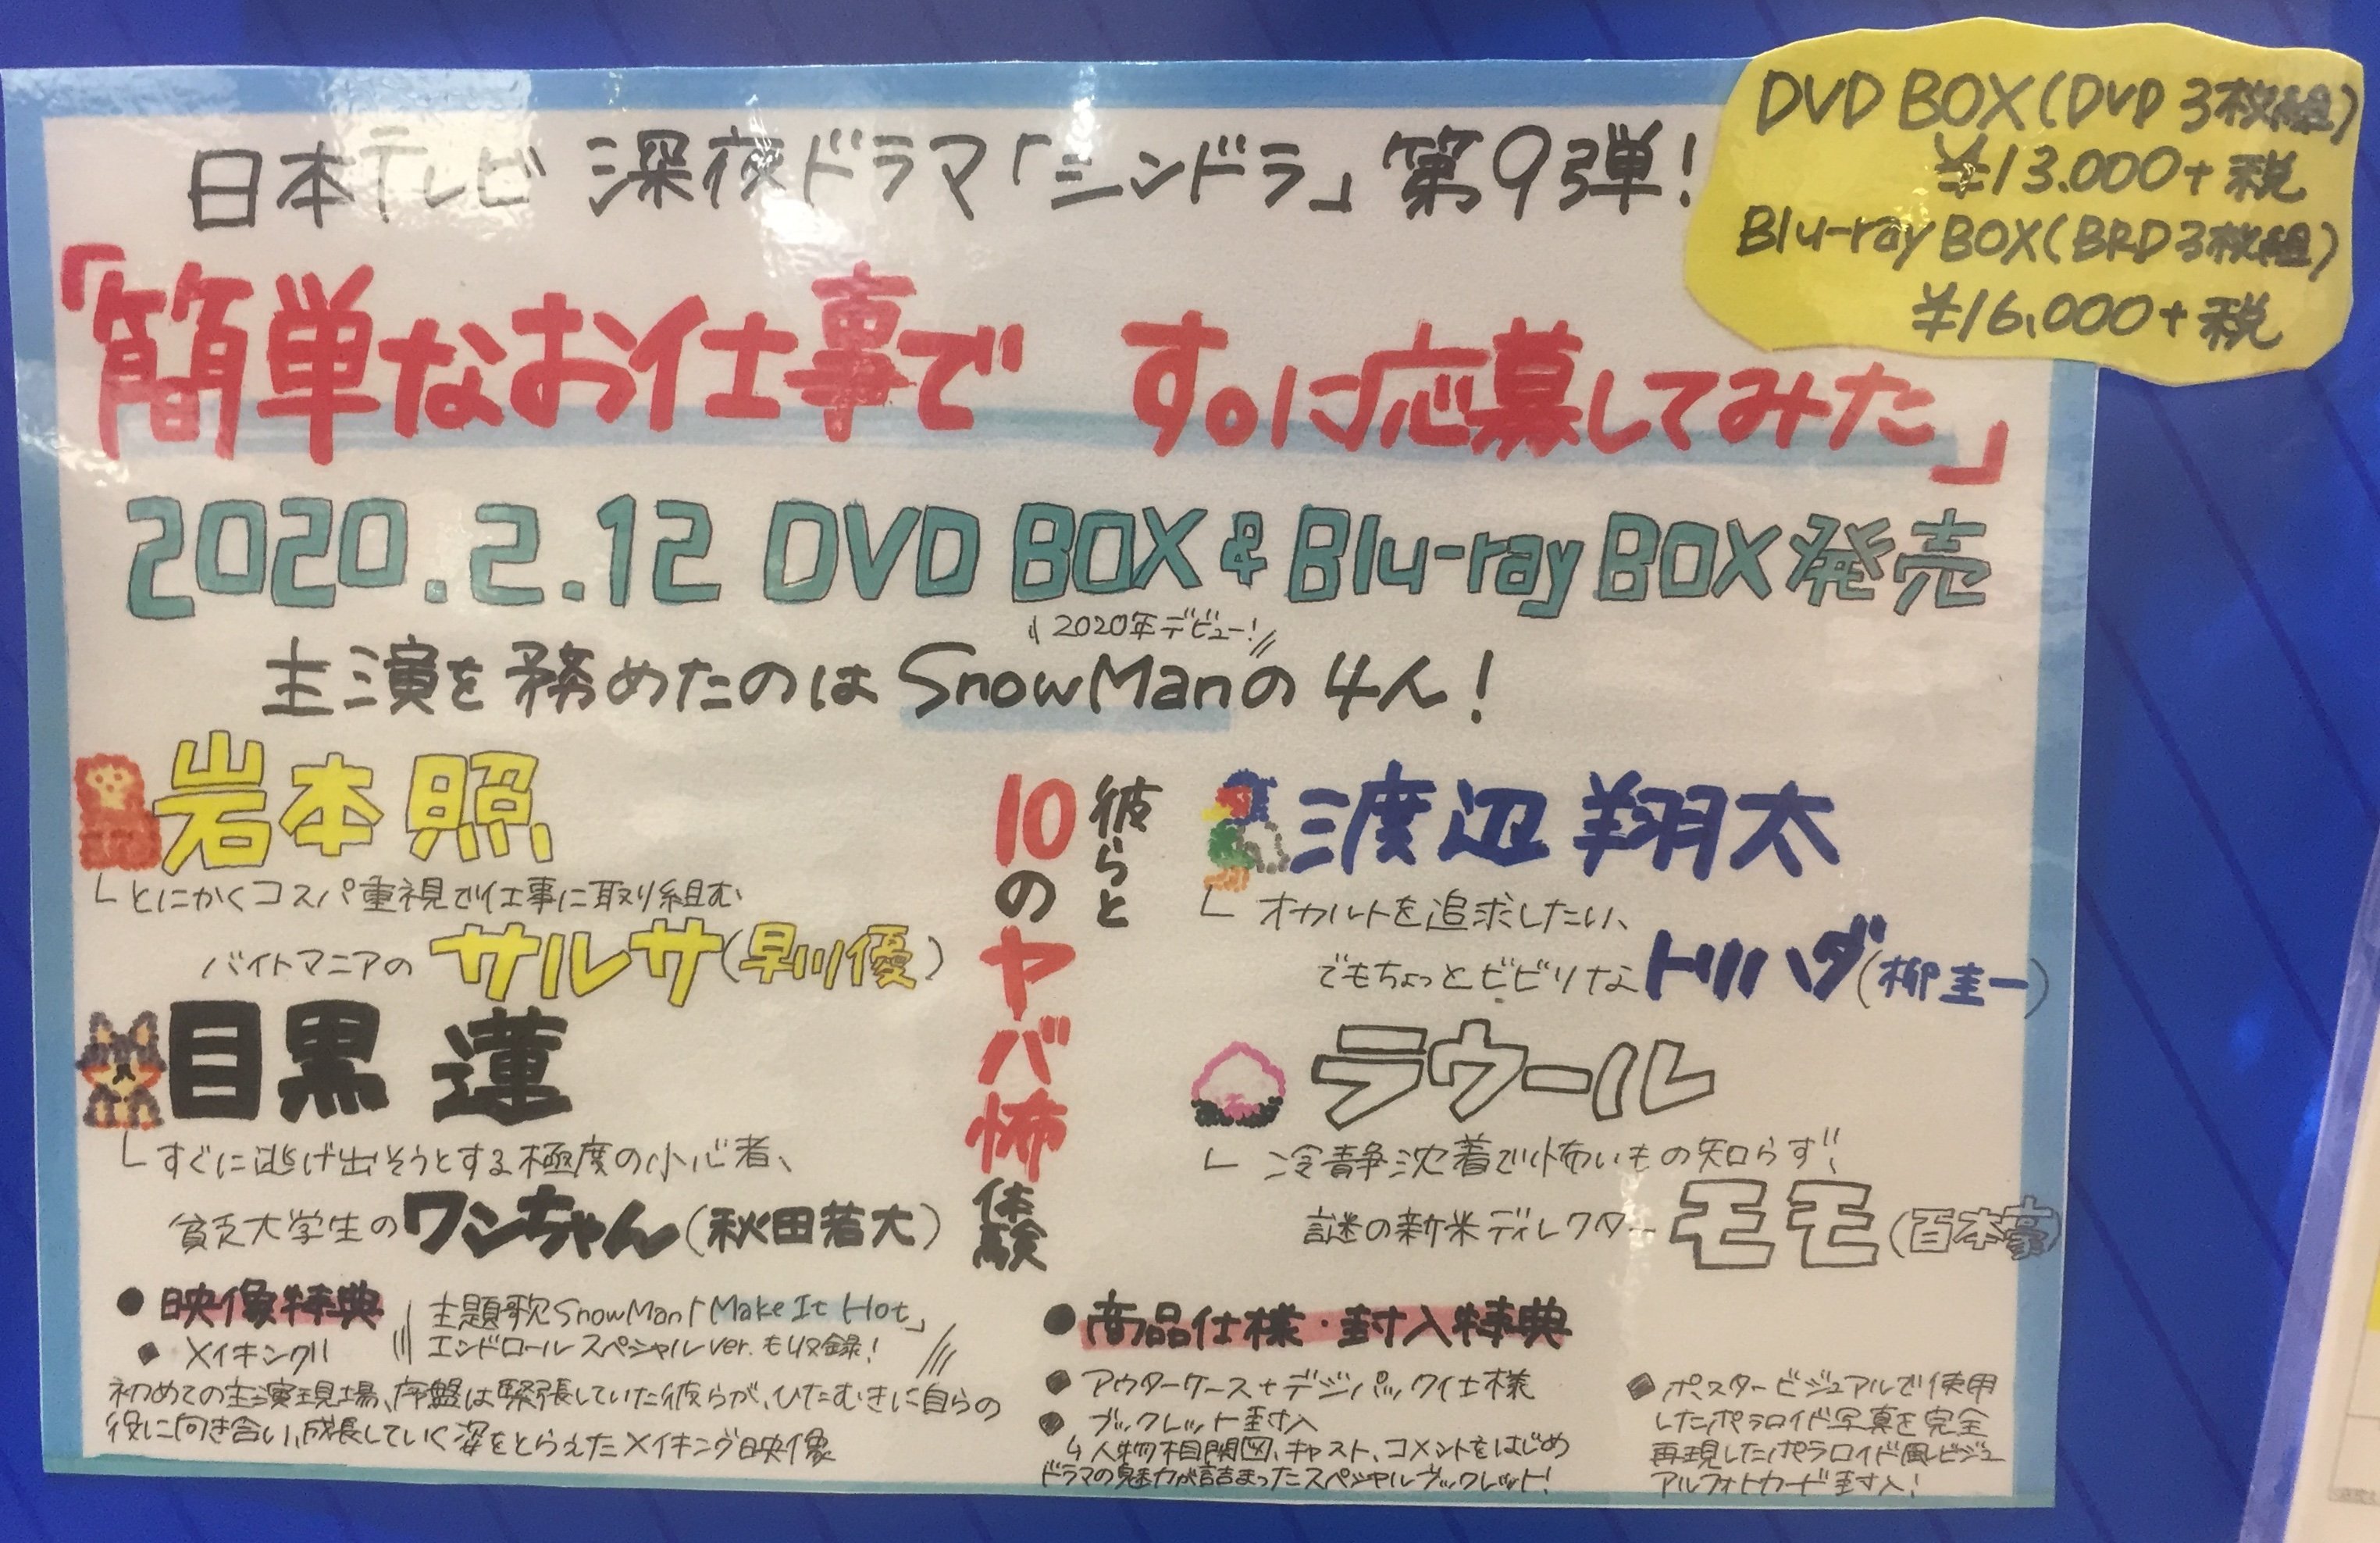 日本テレビ 深夜ドラマ「シンドラ」第9弾!
DVD BOX(DVD 3枚組)
¥13.000+税
Blu-ray BOX(BRD3枚組)
¥16,000+税
「簡単なお仕事で す。に応募してみた」
2020.2.12 DVD BOX & Blu-ray BOX 発売
2020年デビュー!
主演を務めたのは SnowManの4人!
岩本 照
とにかくコスパ重視で仕事に取り組む
バイトマニアの サルサ(早川優)
目黒 蓮
すぐに逃げ出そうとする極度の小心者、
貧乏大学生のワンちゃん(秋田若大)
彼らと
10のヤバ怖体験
渡辺 翔太
オカルトを追求したい、
でもちょっとビビリなトリハダ(柳 圭一)
ラウール
冷静沈着で怖いもの知らず!
謎の新米ディレクターモモ(百本豪)
●映像特典
主題歌SnowMan「Make It Hot」
エンドロールスペシャルver.も収録!
◆メイキング
初めての主演現場、序盤は緊張していた彼らが、ひたむきに自らの
役に向き合い、成長していく姿をとらえたメイキング映像
●商品仕様・封入特典
◆アウターケース+デジパック仕様
◆ブックレット封入
人物相関図、キャスト、コメントをはじめ
ドラマの魅力が詰まったスペシャルブックレット!
◆ポスタービジュアルで使用
したポラロイド写真を完全
再現したポラロイド風ビジュ
アルフォトカード封入!